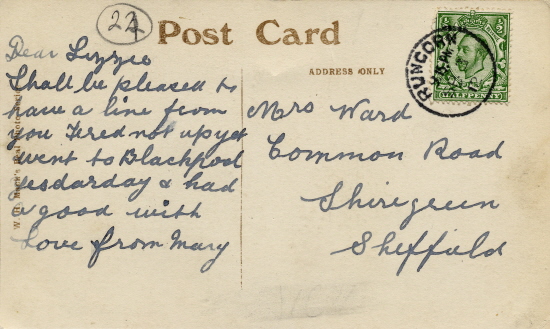 22
Post Card
ADDRESS ONLY
RUNCORN
HALFPENNY
Dear Lizzie
Shall be pleased to
have a line from
you Fred not up yet
went to Blackpool
yesdarday & had
a good with
Love from Mary
Mrs Ward
Common Road
Shiregreen
Sheffield